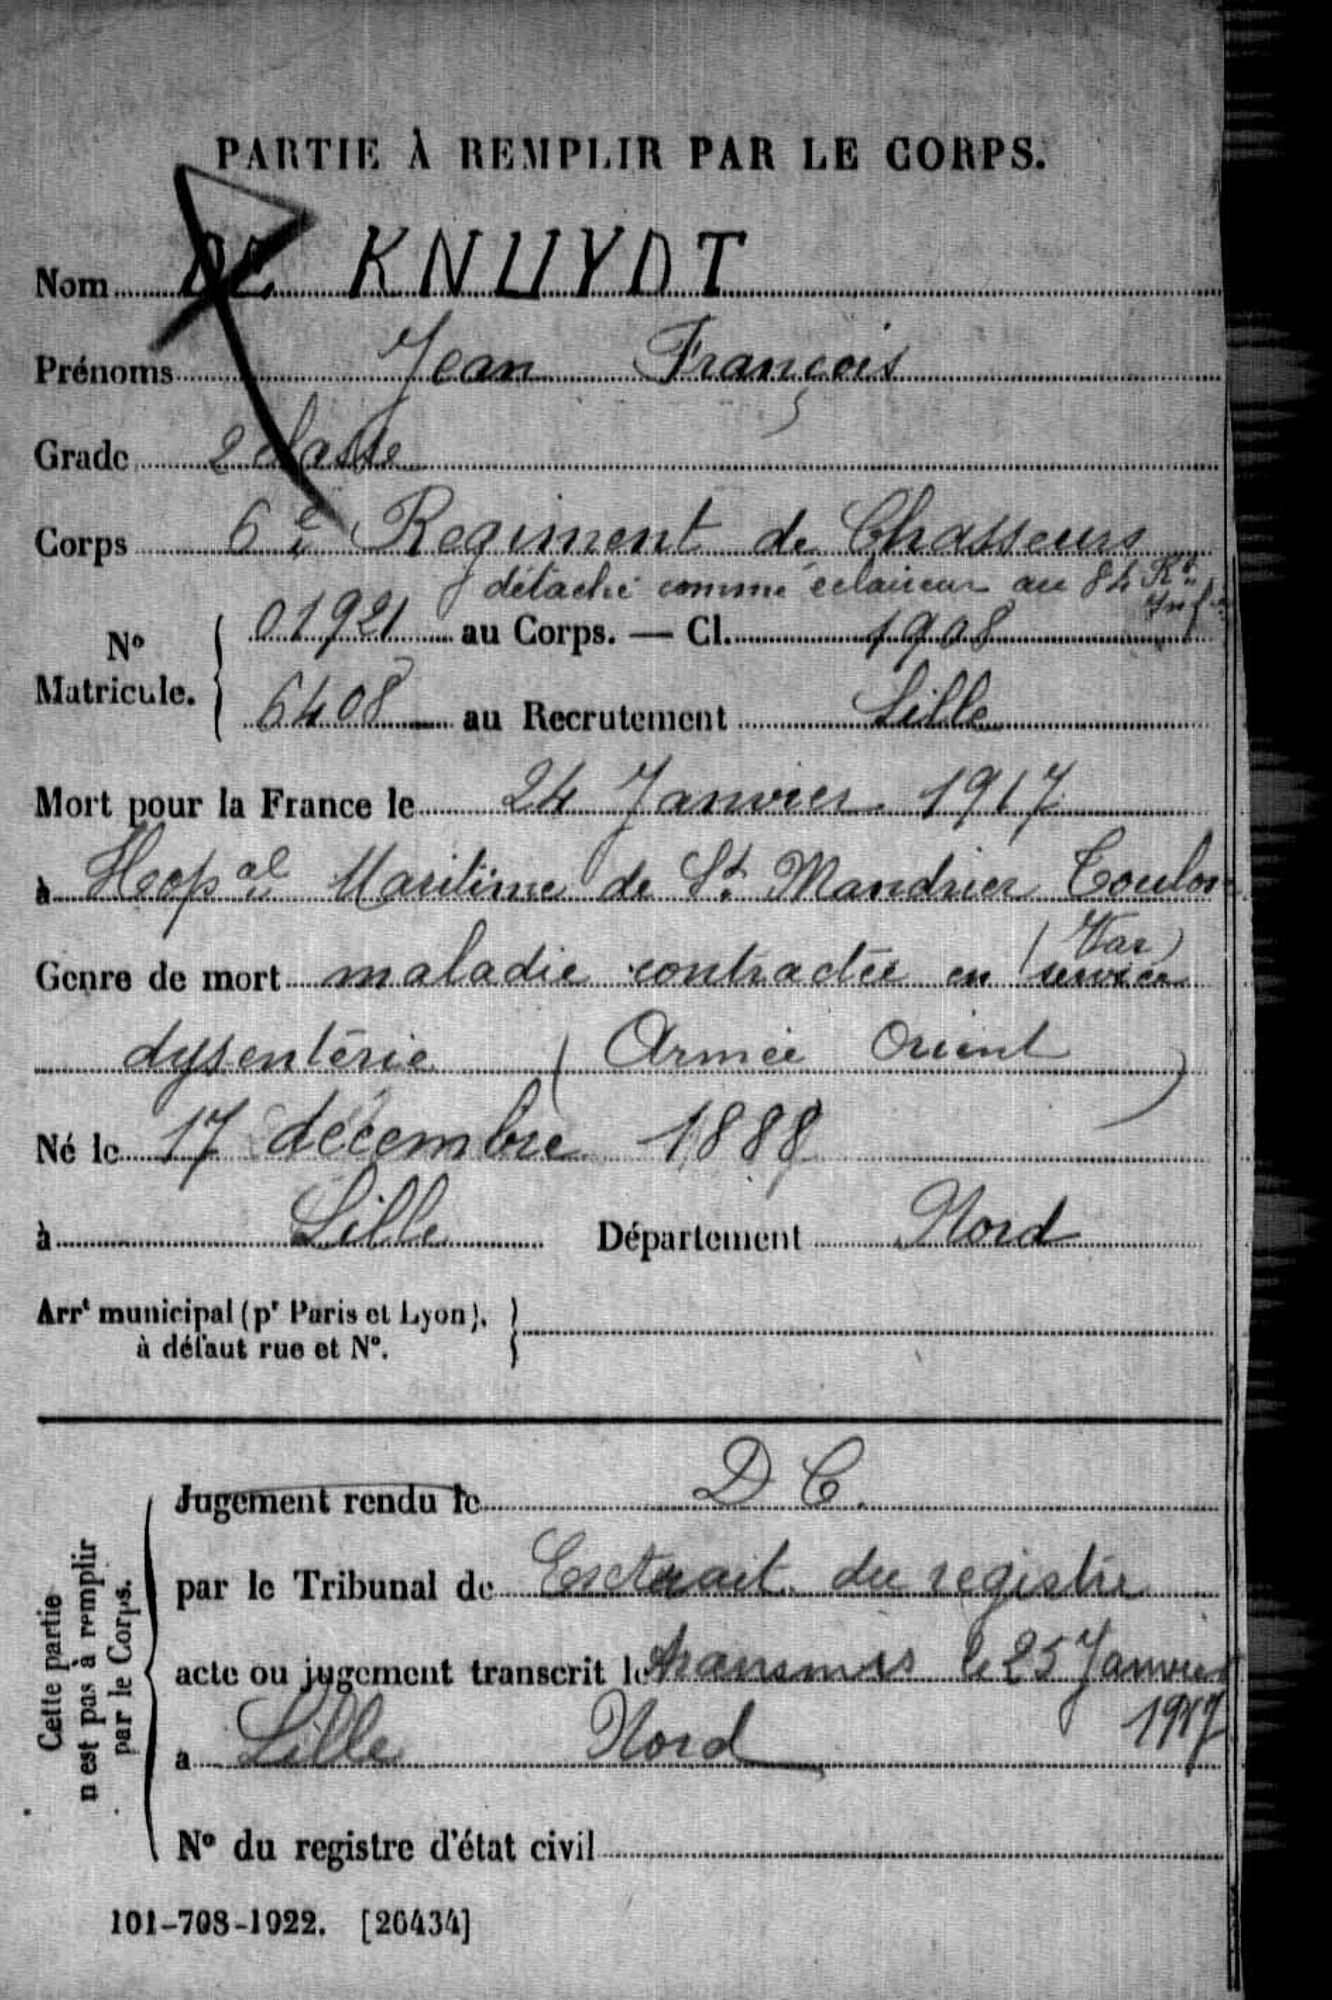 PARTIE À REMPLIR PAR LE CORPS.
Nom DE KNUYDT
Prénoms Jean François
Grade 2 classe
Corps 6e Regiment de Chasseurs
détaché comme eclaireur au 84 Rt Infie
No Matricule. { 01921 au Corps. — Cl. 1908
6408 au Recrutement Lille
Mort pour la France le 24 Janvier 1917
à Hopal Maritime de St Mandrier Toulon
(Var)
Genre de mort maladie contractée en service
dysenterie (Armée Orient)
Né le 17 décembre 1888
à Lille Département Nord
Arrt municipal (pr Paris et Lyon),
à défaut rue et No.
Cette partie
n'est pas à remplir
par le Corps.
Jugement rendu le D C.
par le Tribunal de Extrait du registre
acte ou jugement transcrit le transmis le 25 Janvier
1917
à Lille Nord
No du registre d'état civil
101-708-1922. [26434]